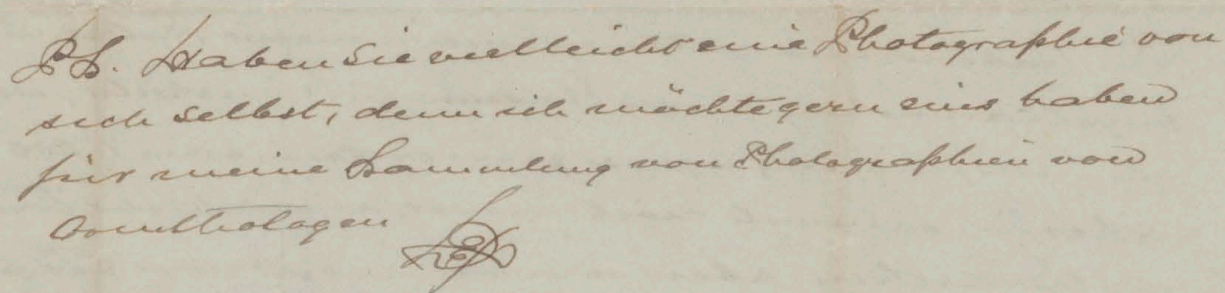 PS. Haben Sie vielleicht eine Photographie von
sich selbst, denn ich möchte gern eins haben
für meine Sammlung von Photographien von
Ornithologen